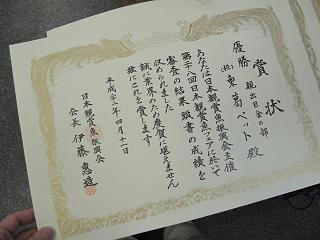 賞状
優勝 親出目金の部
㈱東高ペット殿
あなたは日本観賞魚振興会主催
第二十八回日本観賞魚フェアに於いて
審査の結果頭書の成績を
収められました
誠に業界のため慶賀に堪えません
茲にこれを賞します
平成二十二年四月十一日
日本観賞魚振興会
会長 伊藤恵造